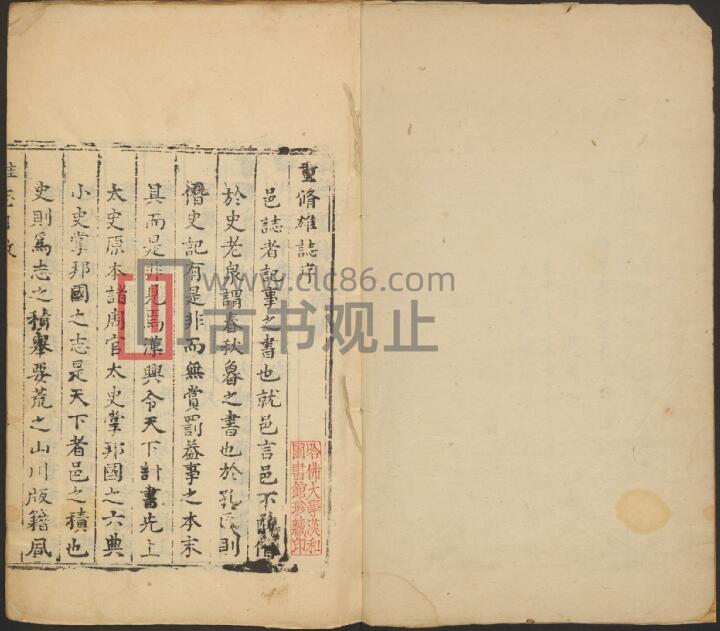 重脩雄誌序
邑誌者記事之書也就邑言邑不
於史老泉謂春秋魯之書也於孔氏則
僭史記有是非而無賞罰益事之本末
具而是非見焉漢興令天下計書先上
太史原本諸周官太史掌邦國之六典
小史掌邦國之志是天下者邑之積也
史則為志之積舉要荒之山川版籍風
塔佛大學漢和
圖書館珍藏印
www.dlc86.com
古书观止